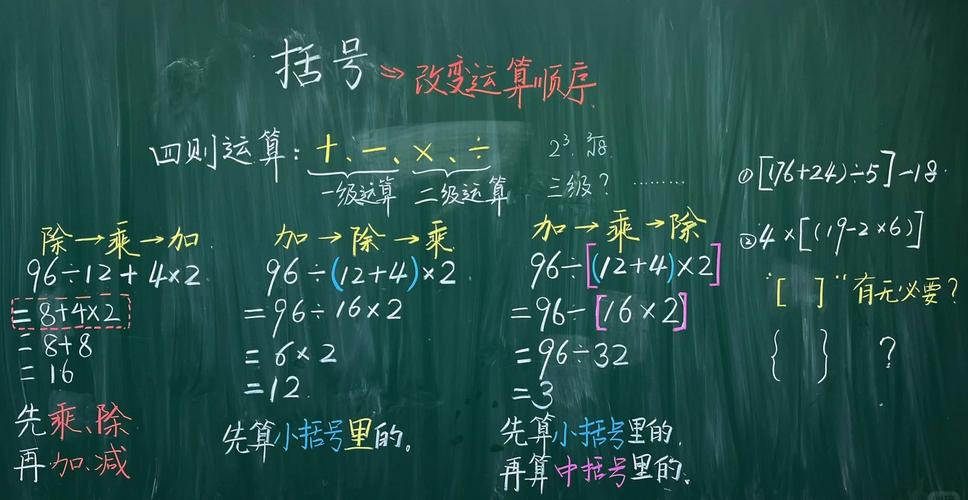 括号 ⇒ 改变运算顺序
四则运算：＋、－、×、÷
一级运算 二级运算
2³. ∛8.
三级？ ………
除→乘→加
96÷12+4×2
=8+4×2
=8+8
=16
先乘、除
再加、减
加→除→乘
96÷(12+4)×2
=96÷16×2
=6×2
=12.
先算小括号里的。
加→乘→除
96÷[(12+4)×2]
=96÷[16×2]
=96÷32
=3
先算小括号里的,
再算中括号里的。
① [176+24)÷5]-18
② 4×[(19-2×6)]
"[ ]"有无必要？
{ } ？